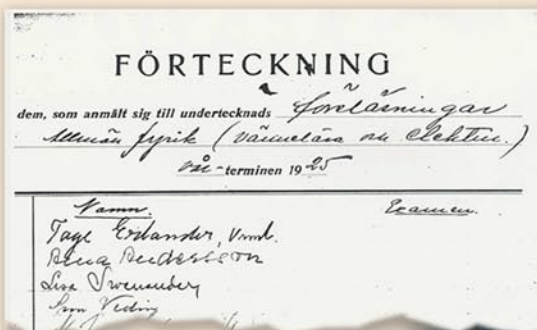 FÖRTECKNING
dem, som anmält sig till undertecknads föreläsningar
Allmän fysik (värmelära och elektr.)
vår-terminen 1925
Namn. Examen.
Tage Erlander, Vrml.
Aina Andersson
Lisa Swenander